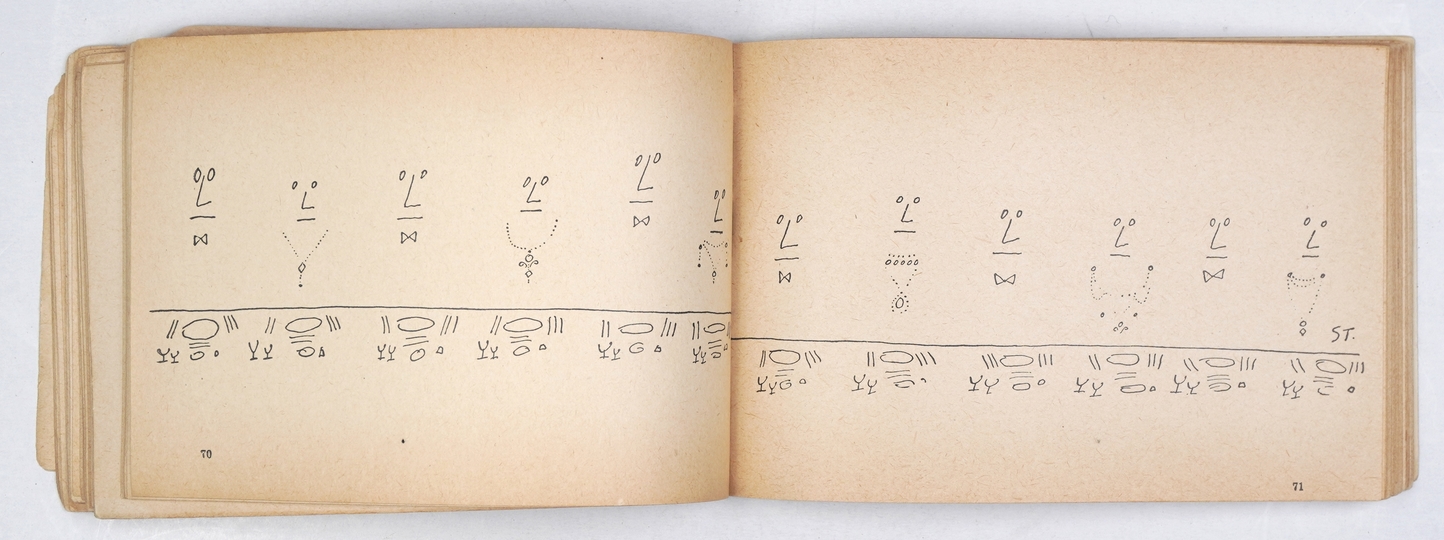 ST.
70
71